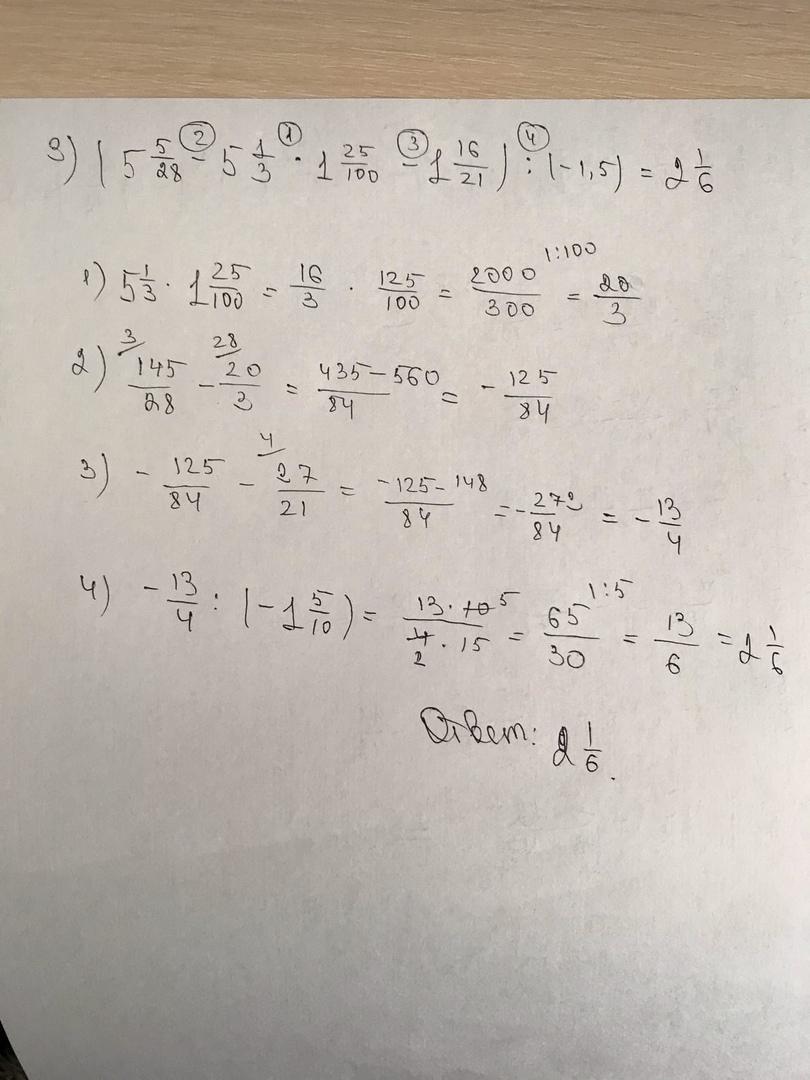 3) (5 5/28 - 5 1/3 · 1 25/100 - 1 16/21) : (-1,5) = 2 1/6
② ① ③ ④
1) 5 1/3 · 1 25/100 = 16/3 · 125/100 = 2000/300 |:100 = 20/3
2) 3/ 145/28 - 28/ 20/3 = 435-560/84 = - 125/84
3) - 125/84 - 4/ 27/21 = -125-148/84 = - 273/84 = - 13/4
4) - 13/4 : (-1 5/10) = 13·10 5/4 2·15 = 65/30 |:5 = 13/6 = 2 1/6
Ответ: 2 1/6.